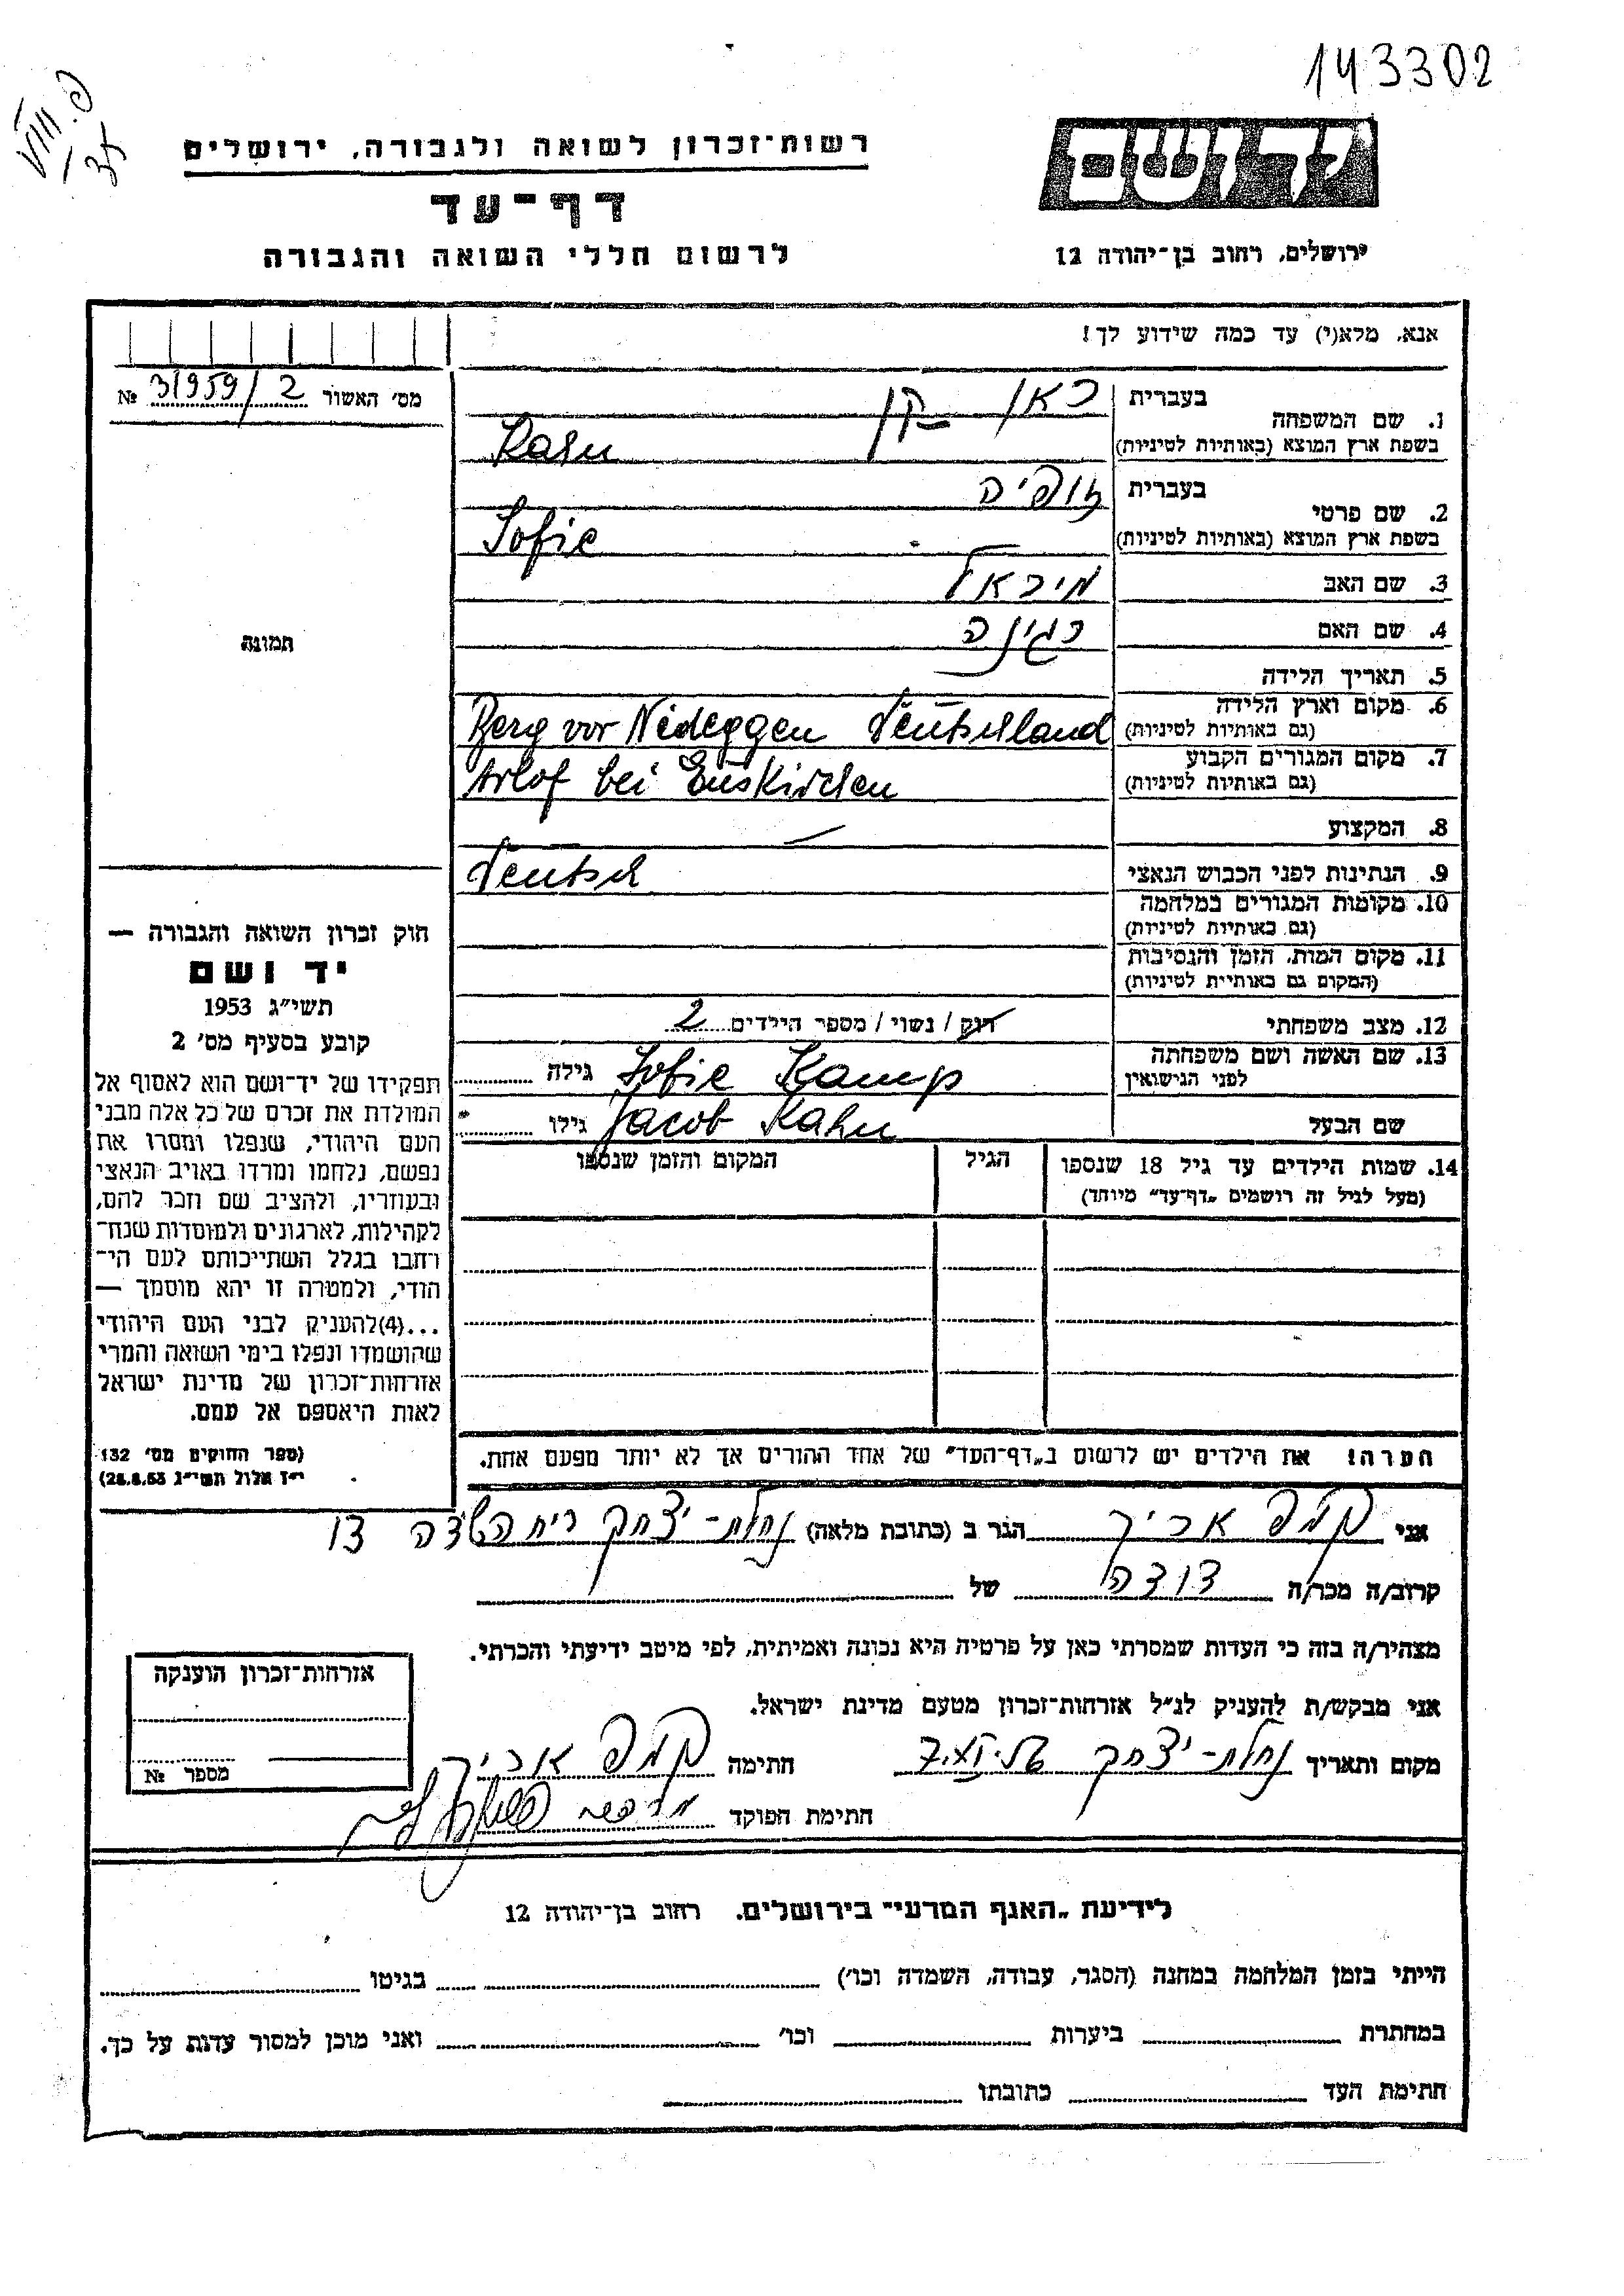 143302
רשות־זכרון לשואה ולגבורה, ירושלים
דף־עד
לרשום חללי השואה והגבורה
ידושם
ירושלים, רחוב בן־יהודה 12
אנא, מלא(י) עד כמה שידוע לך!
מס' האשור 31959/2 №
בעברית כאן קן
1. שם המשפחה
בשפת ארץ המוצא (באותיות לטיניות) Kahn
בעברית זופיה
2. שם פרטי
בשפת ארץ המוצא (באותיות לטיניות) Sofie
3. שם האב מיכאל
4. שם האם רגינה
5. תאריך הלידה
6. מקום וארץ הלידה
(גם באותיות לטיניות) Berg vor Nideggen Deutschland
7. מקום המגורים הקבוע
(גם באותיות לטיניות) Arlof bei Euskirchen
8. המקצוע —
9. הנתינות לפני הכבוש הנאצי Deutsch
10. מקומות המגורים במלחמה
(גם באותיות לטיניות)
11. מקום המות, הזמן והנסיבות
(המקום גם באותיות לטיניות)
12. מצב משפחתי רוק / נשוי / מספר הילדים 2
13. שם האשה ושם משפחתה
לפני הנישואין Sofie Kamp גילה
שם הבעל Jacob Kahn גילו
14. שמות הילדים עד גיל 18 שנספו
(מעל לגיל זה רושמים „דף־עד" מיוחד)
הגיל
המקום והזמן שנספו
תמונה
חוק זכרון השואה והגבורה —
יד ושם
תשי"ג 1953
קובע בסעיף מס' 2
תפקידו של יד־ושם הוא לאסוף אל
המולדת את זכרם של כל אלה מבני
העם היהודי, שנפלו ומסרו את
נפשם, נלחמו ומרדו באויב הנאצי
ובעוזריו, ולהציב שם וזכר להם,
לקהילות, לארגונים ולמוסדות שנח־
רבו בגלל השתייכותם לעם הי־
הודי, ולמטרה זו יהא מוסמך —
...(4)להעניק לבני העם היהודי
שהושמדו ונפלו בימי השואה והמרי
אזרחות־זכרון של מדינת ישראל
לאות היאספם אל עמם.
(ספר החוקים מס' 132
י"ז אלול תשי"ג 28.8.53)
הערה! את הילדים יש לרשום ב„דף־העד" של אחד ההורים אך לא יותר מפעם אחת.
אני קמפ אריך הגר ב (כתובת מלאה) נחלת-יצחק
קרוב/ה מכר/ה דודה של
מצהיר/ה בזה כי העדות שמסרתי כאן על פרטיה היא נכונה ואמיתית, לפי מיטב ידיעתי והכרתי.
אני מבקש/ת להעניק לנ"ל אזרחות־זכרון מטעם מדינת ישראל.
מקום ותאריך נחלת-יצחק חתימה קמפ אריך
חתימת הפוקד
אזרחות־זכרון הוענקה
מספר №
לידיעת „האגף המדעי" בירושלים. רחוב בן־יהודה 12
הייתי בזמן המלחמה במחנה (הסגר, עבודה, השמדה וכו') בגיטו
במחתרת ביערות וכו' ואני מוכן למסור עדות על כך.
חתימת העד כתובתו